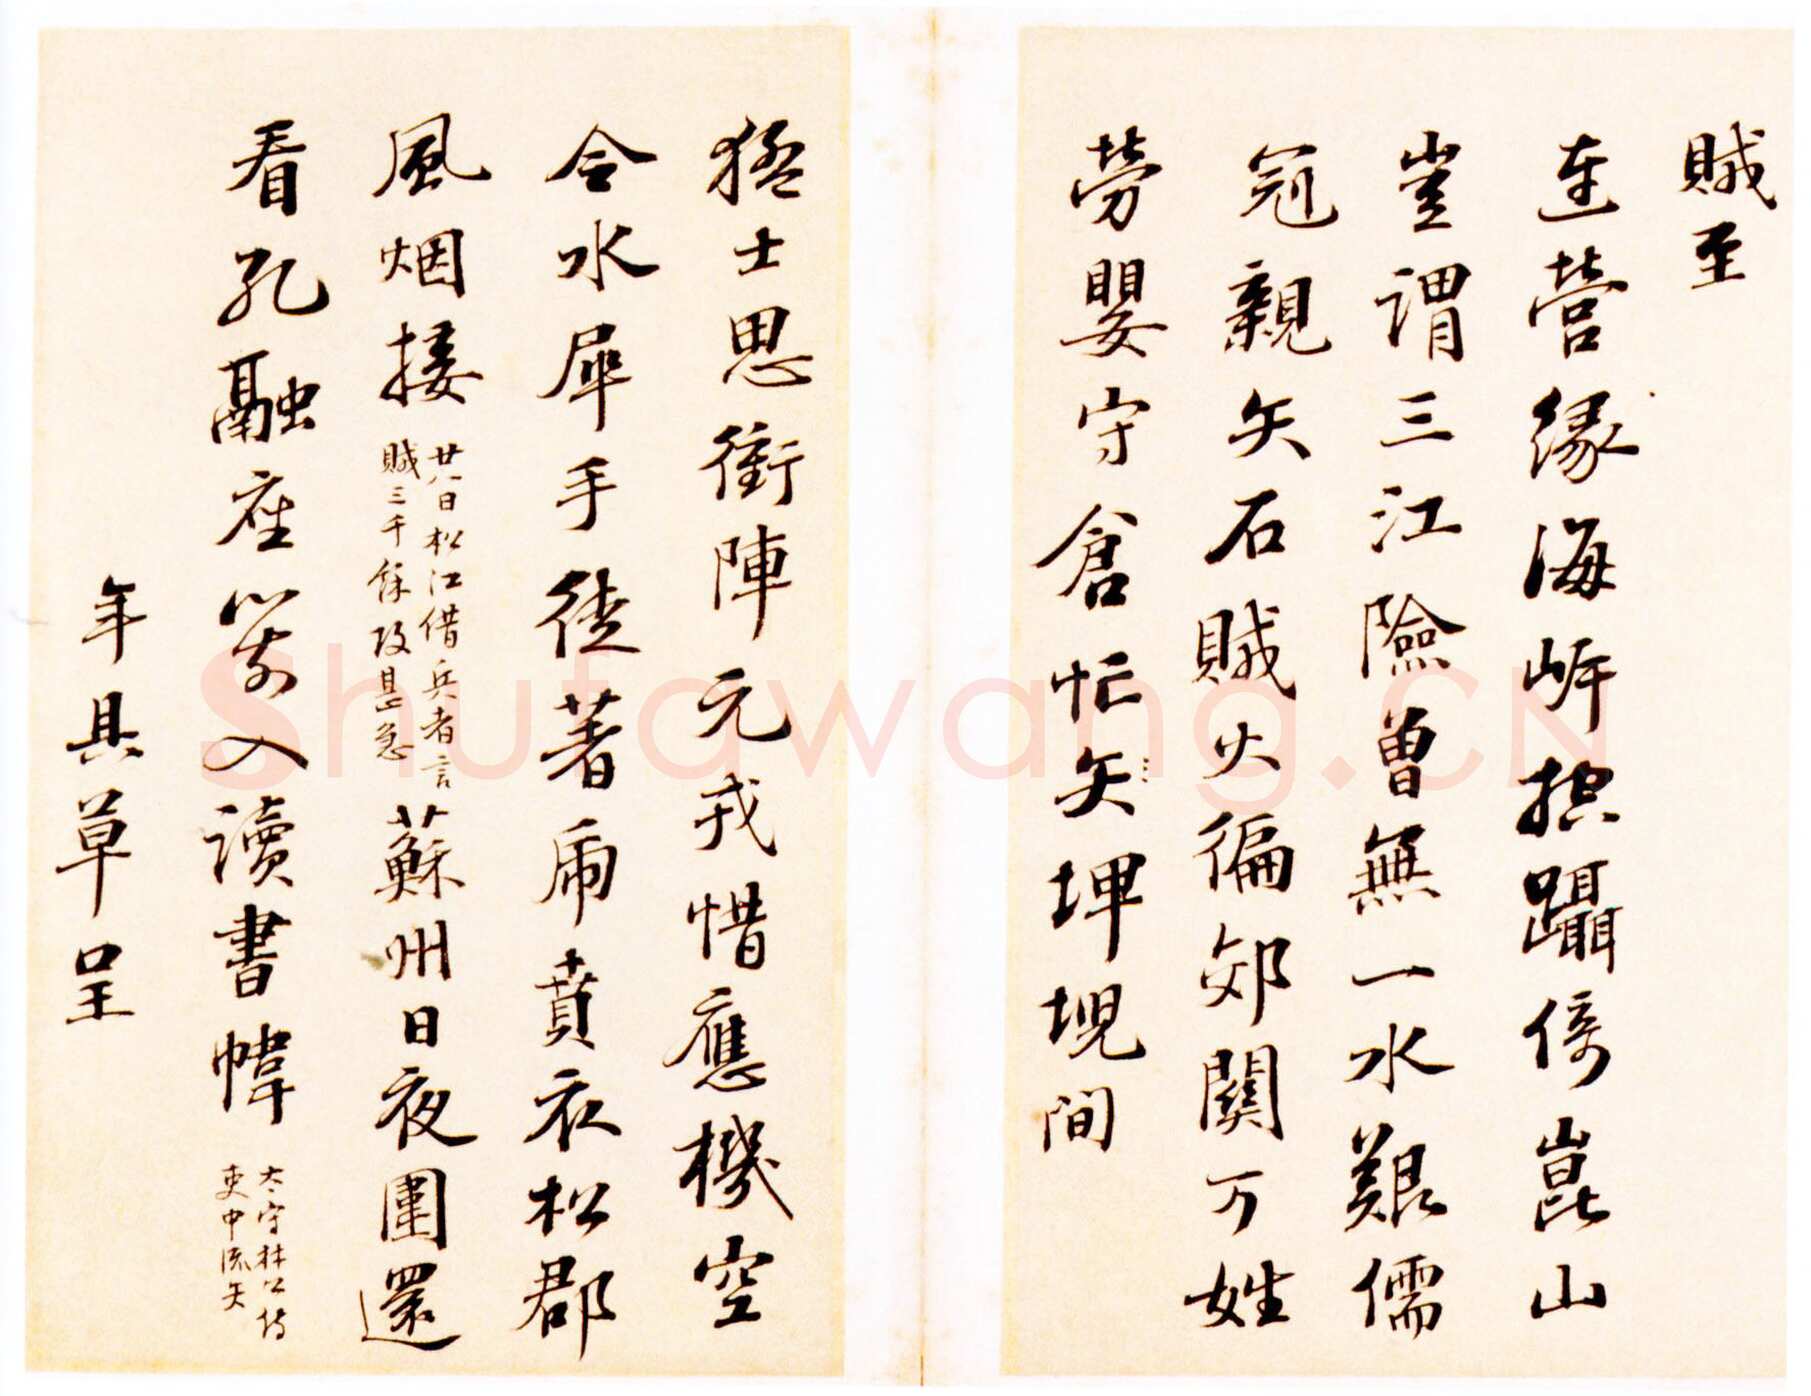 賊至
連營緣海岍抱躡倚崑山
豈謂三江險曾無一水艱儒
冠親矢石賊火徧郊關万姓
勞嬰守倉忙矢埤堄間
猛士思衝陣元戎惜應機空
令水犀手徒著虎賁衣松郡
風烟接
廿八日松江借兵者言
賊三千餘攻甚急
蘇州日夜圍還
看孔融座箭入讀書幃
太守林公侍
吏中流矢
年具草呈
Shufawang.CN